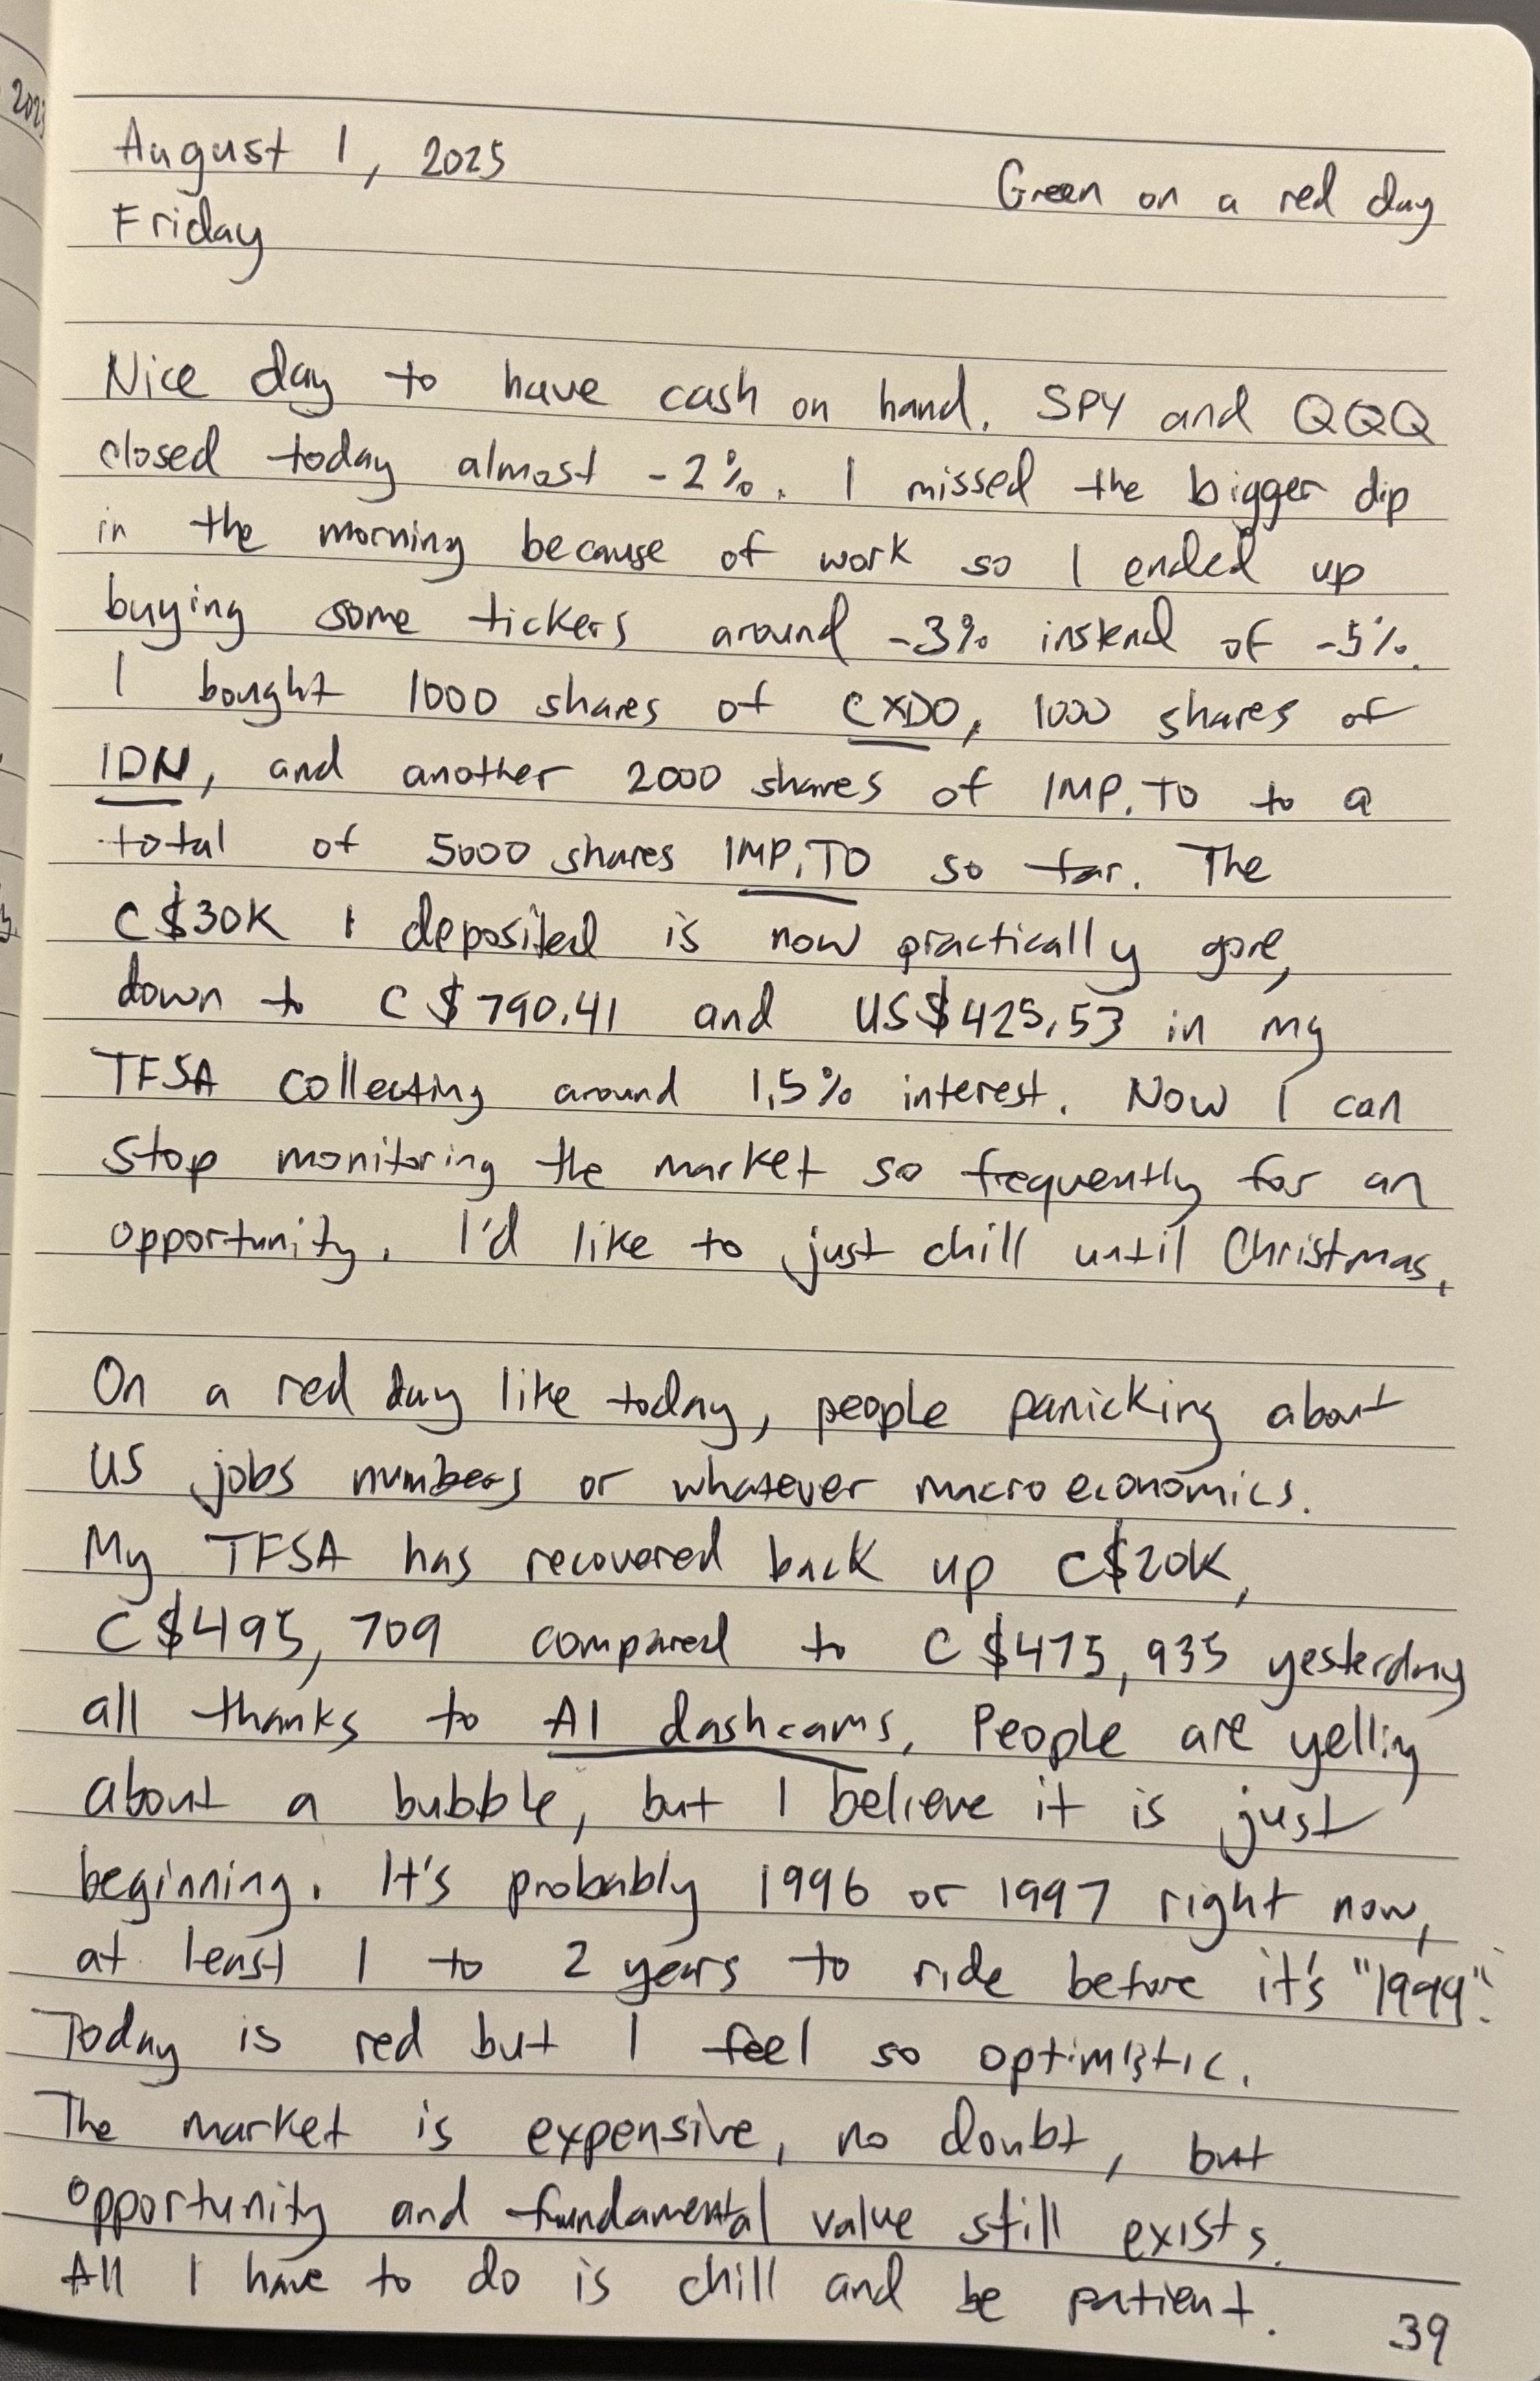 August 1, 2025
Green on a red day
Friday
Nice day to have cash on hand. SPY and QQQ
closed today almost -2%. I missed the bigger dip
in the morning because of work so I ended up
buying some tickers around -3% instead of -5%.
I bought 1000 shares of CXDO, 1000 shares of
IDN, and another 2000 shares of IMP.TO to a
total of 5000 shares IMP.TO so far. The
C$30K I deposited is now practically gone,
down to C$790.41 and US$425.53 in my
TFSA collecting around 1.5% interest. Now I can
stop monitoring the market so frequently for an
opportunity. I'd like to just chill until Christmas.
On a red day like today, people panicking about
US jobs numbers or whatever macroeconomics.
My TFSA has recovered back up C$20K,
C$495,709 compared to C$475,935 yesterday
all thanks to AI dashcams. People are yelling
about a bubble, but I believe it is just
beginning. It's probably 1996 or 1997 right now,
at least 1 to 2 years to ride before it's "1999".
Today is red but I feel so optimistic.
The market is expensive, no doubt, but
opportunity and fundamental value still exists.
All I have to do is chill and be patient.
39